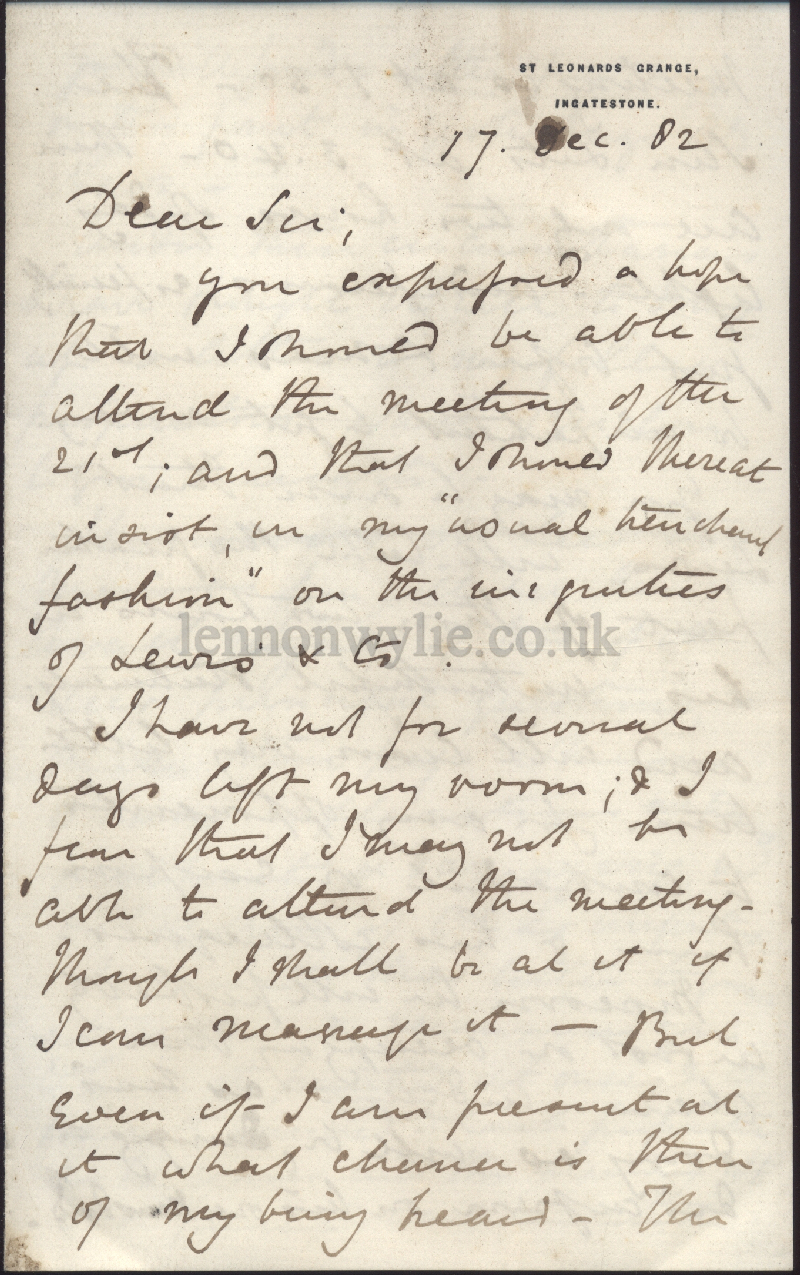 ST LEONARDS GRANGE,
INGATESTONE.
17. Dec. 82
Dear Sir,
you expressed a hope
that I should be able to
attend the meeting of the
21st; and that I should thereat
insist, in my "usual trenchant
fashion" on the iniquities
of Lewis & Co.
lennonwylie.co.uk
I have not for several
days left my room; & I
fear that I may not be
able to attend the meeting -
though I shall be at it if
I can manage it — But
Even if I am present at
it what chance is there
of my being heard - The